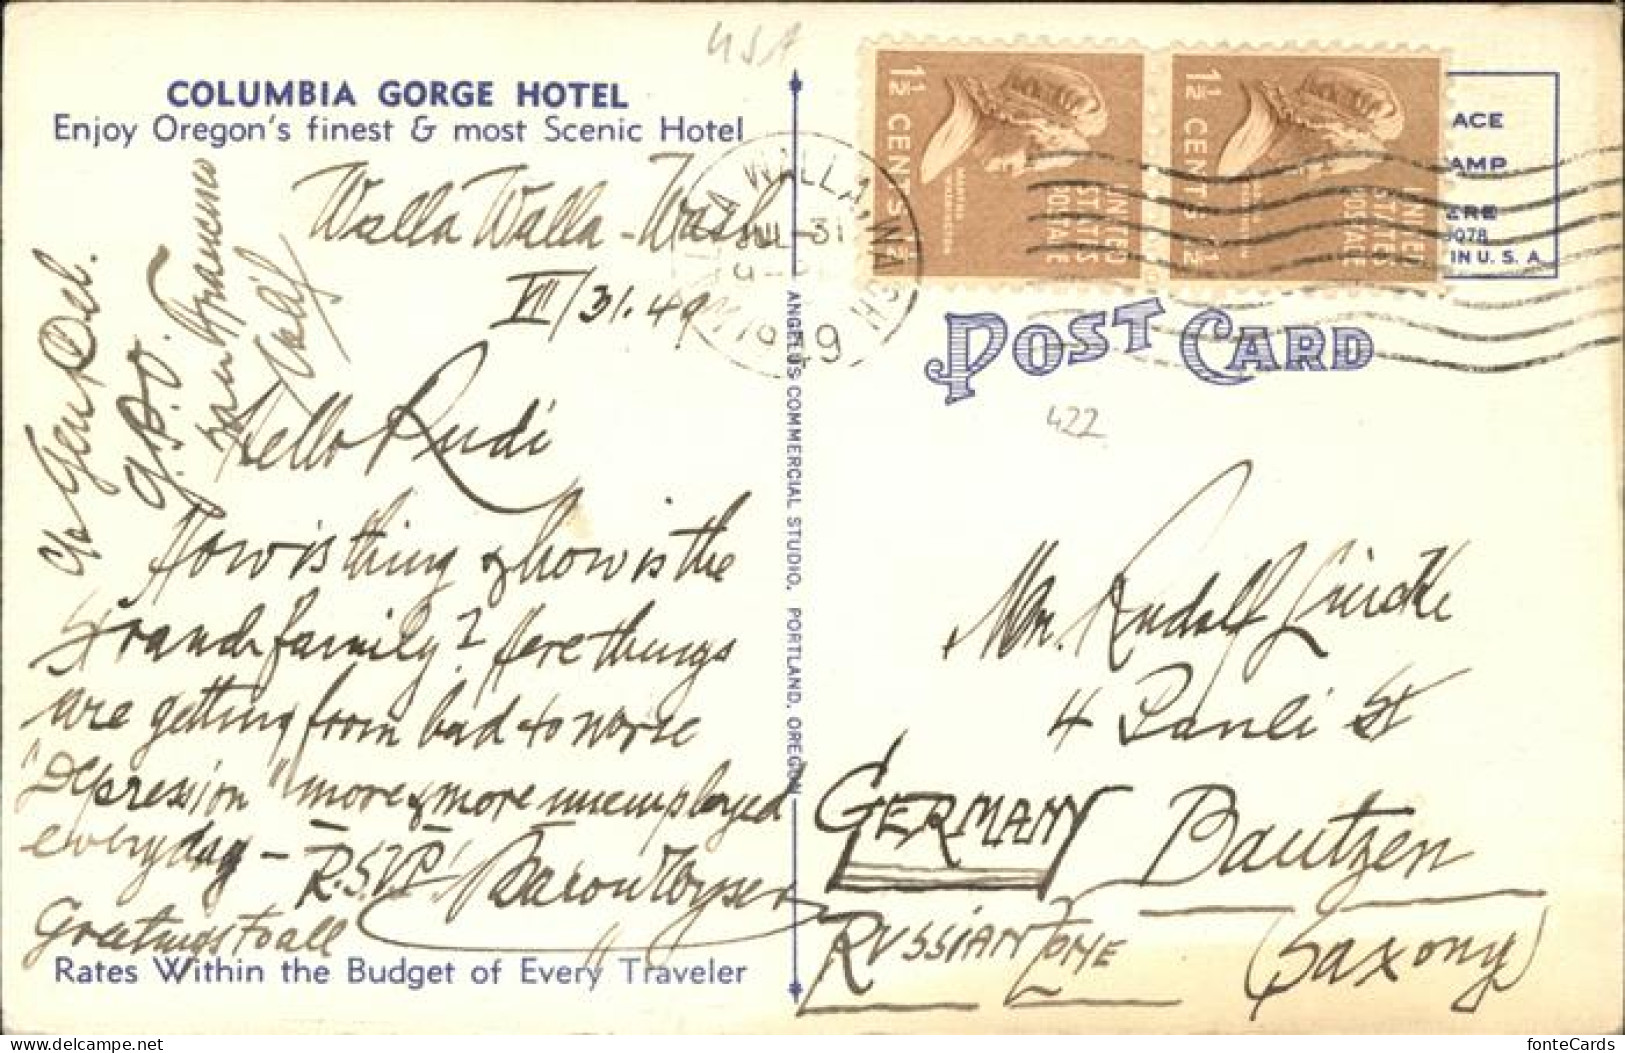 USA
COLUMBIA GORGE HOTEL
Enjoy Oregon's finest & most Scenic Hotel
Walla Walla - Wash
VII/31.49
c/o Gen Del.
G.P.O.
San Francisco
Calif
Hello Rudi
How is thing & how is the
grand family? Here things
are getting from bad to worse
"Depression" more & more unemployed
everyday - R.S.V.P.! Baron
Greetings to all
Rates Within the Budget of Every Traveler
ANGELUS COMMERCIAL STUDIO, PORTLAND, OREGON
WALLA WALLA, WASH
JUL 31
1949
1½ CENTS 1½
MARTHA WASHINGTON
UNITED STATES POSTAGE
1½ CENTS 1½
UNITED STATES POSTAGE
ACE
AMP
ERE
1078
IN U. S. A.
POST CARD
422
Mr. Rudolf
4 Pauli St
GERMANY Bautzen
RUSSIAN ZONE (Saxony)
fonteCards